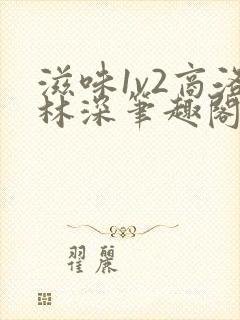 滋味1v2高洛
林深笔趣阁
翟丽